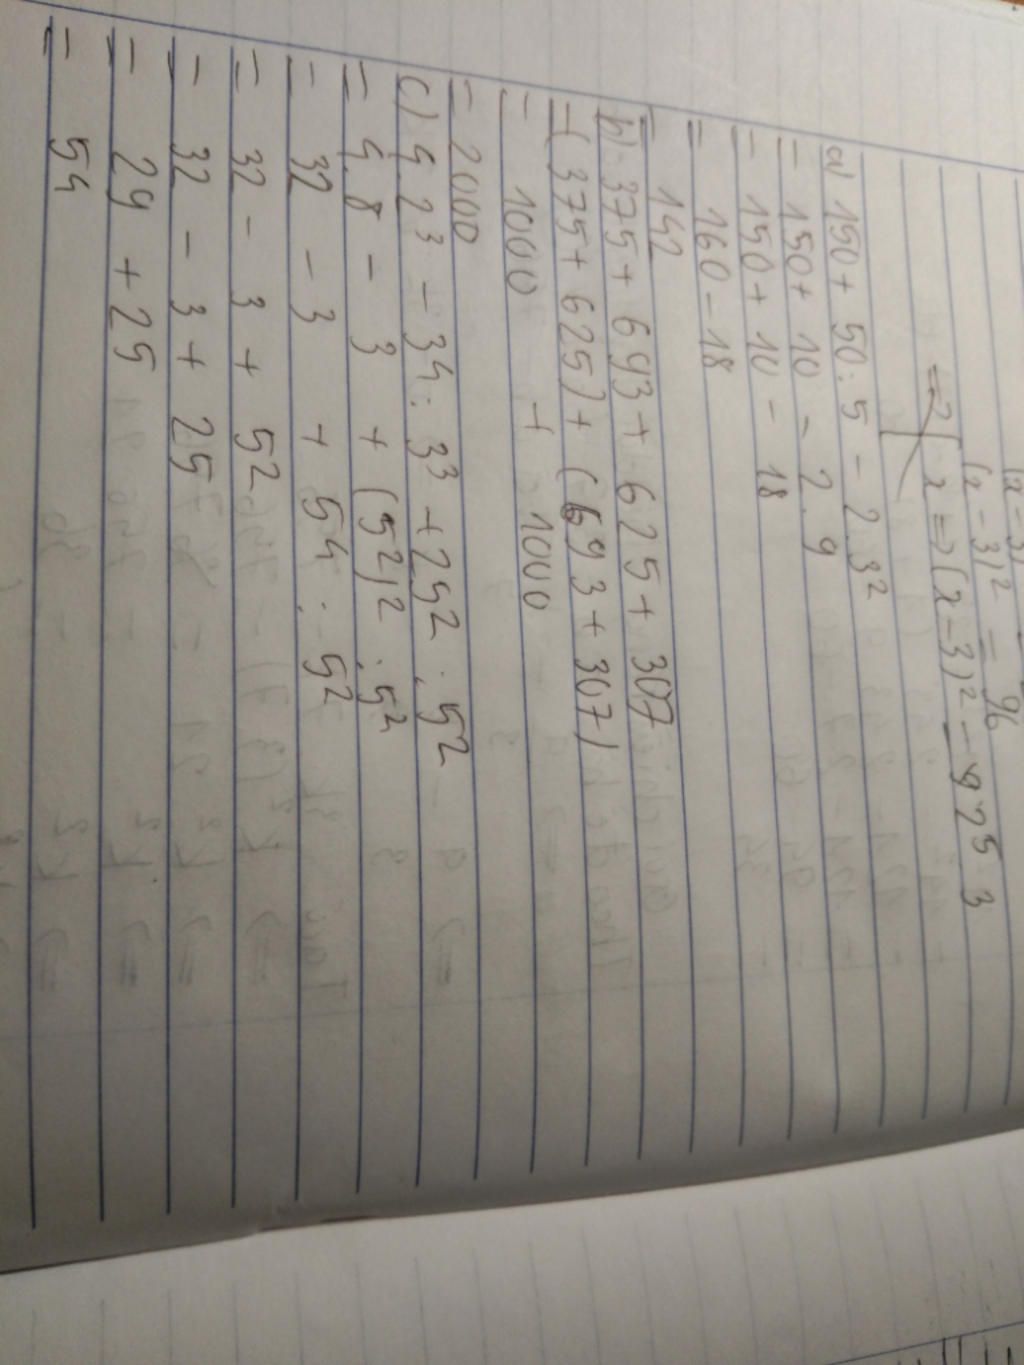 (x - 3)² = 96
=> [ x => (x - 3)² - 92⁵ 3
a) 150 + 50 : 5 - 2 . 3²
= 150 + 10 - 2 . 9
= 150 + 10 - 18
= 160 - 18
= 142
b) 375 + 693 + 625 + 307
= (375 + 625) + (693 + 307)
= 1000 + 1000
= 2000
c) 4 . 2³ - 3⁴ : 3³ + 25² : 5²
= 4 . 8 - 3 + (5²)² : 5²
= 32 - 3 + 5⁴ : 5²
= 32 - 3 + 5²
= 32 - 3 + 25
= 29 + 25
= 54